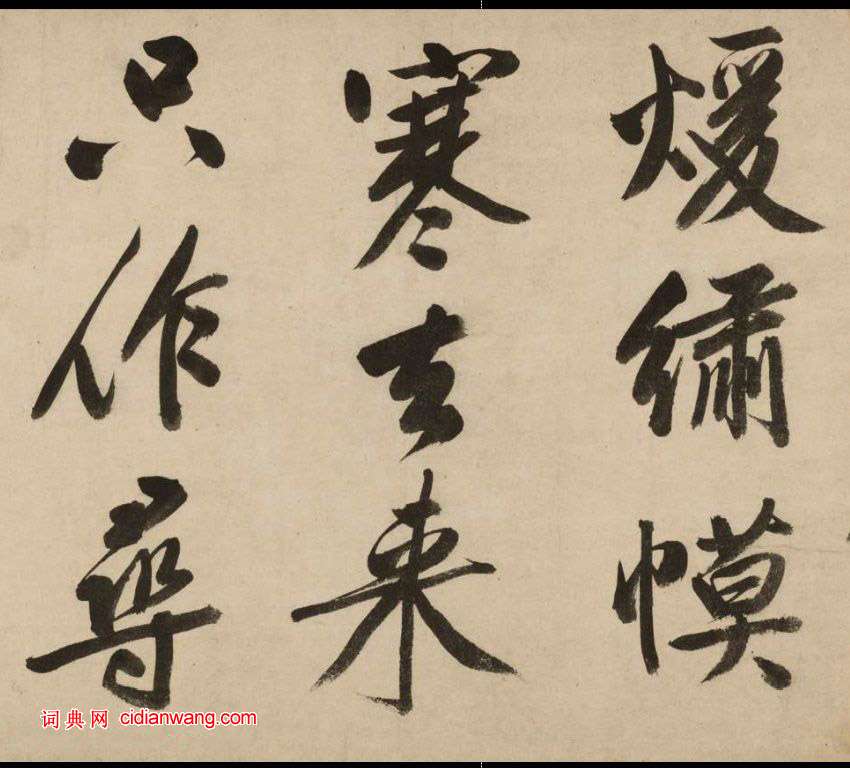 煖繡幙
寒去来
只作尋
词典网 cidianwang.com